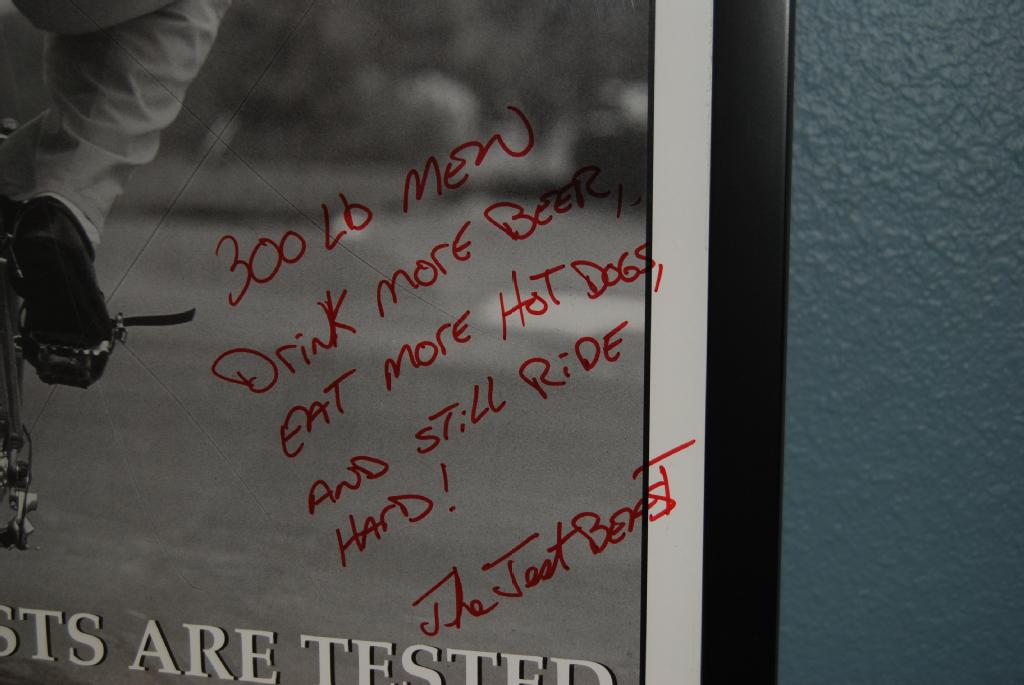 300 Lb MEN
Drink MorE BEER,
EAT MorE HOT DOGS,
AND STiLL RiDE
HArD!
The Test BEAST
STS ARE TESTED